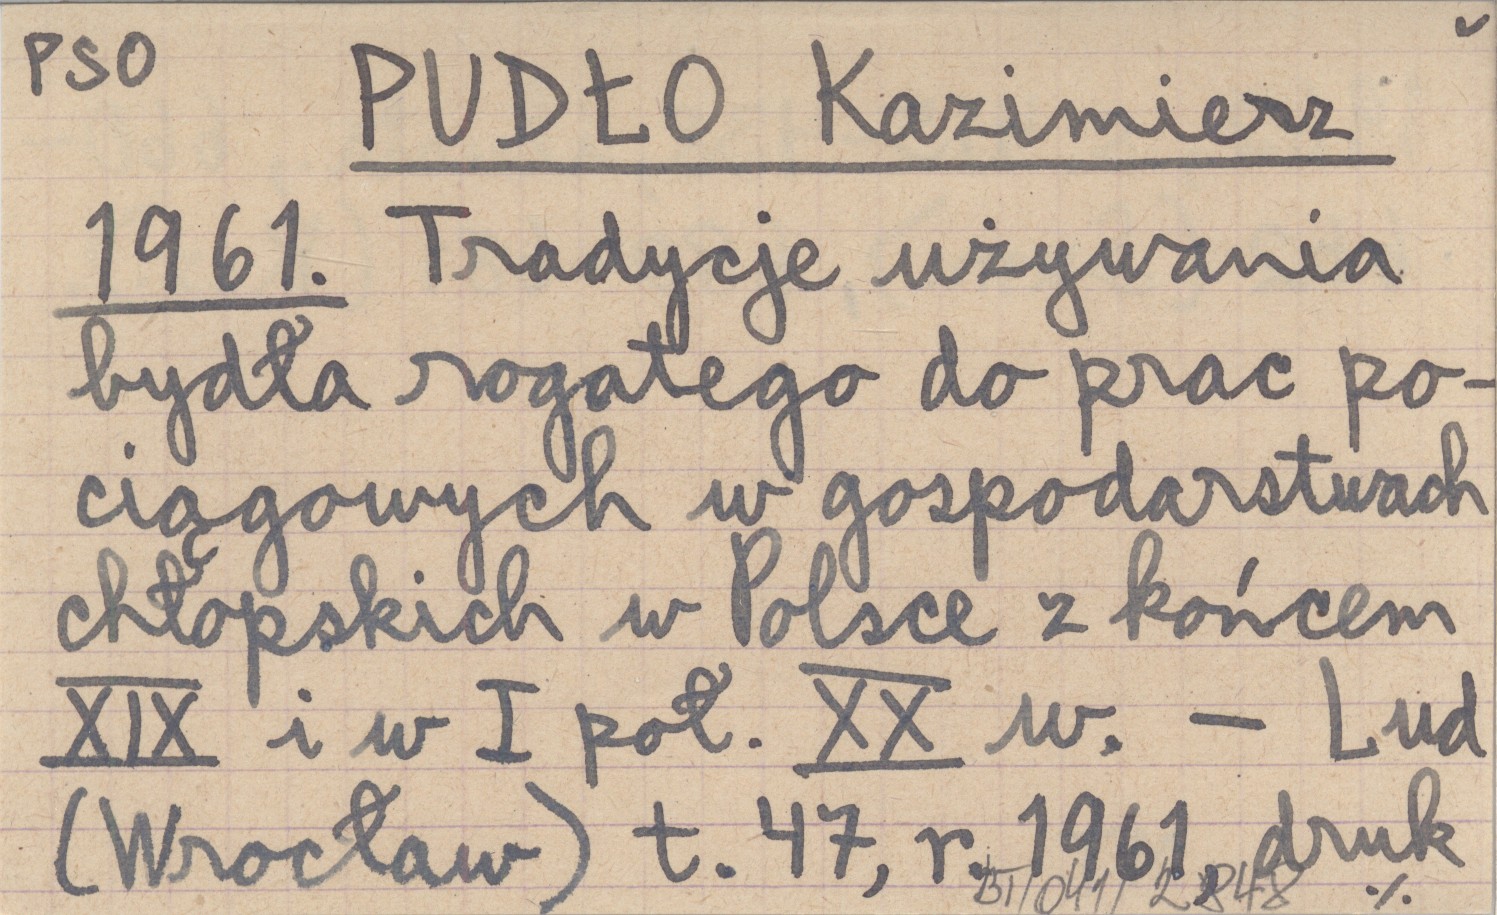 PSO
PUDŁO Kazimierz
1961. Tradycje używania
bydła rogatego do prac po-
ciągowych w gospodarstwach
chłopskich w Polsce z końcem
XIX i w I poł. XX w. – Lud
(Wrocław) t. 47, r. 1961, druk
BI/041/2848 ./.